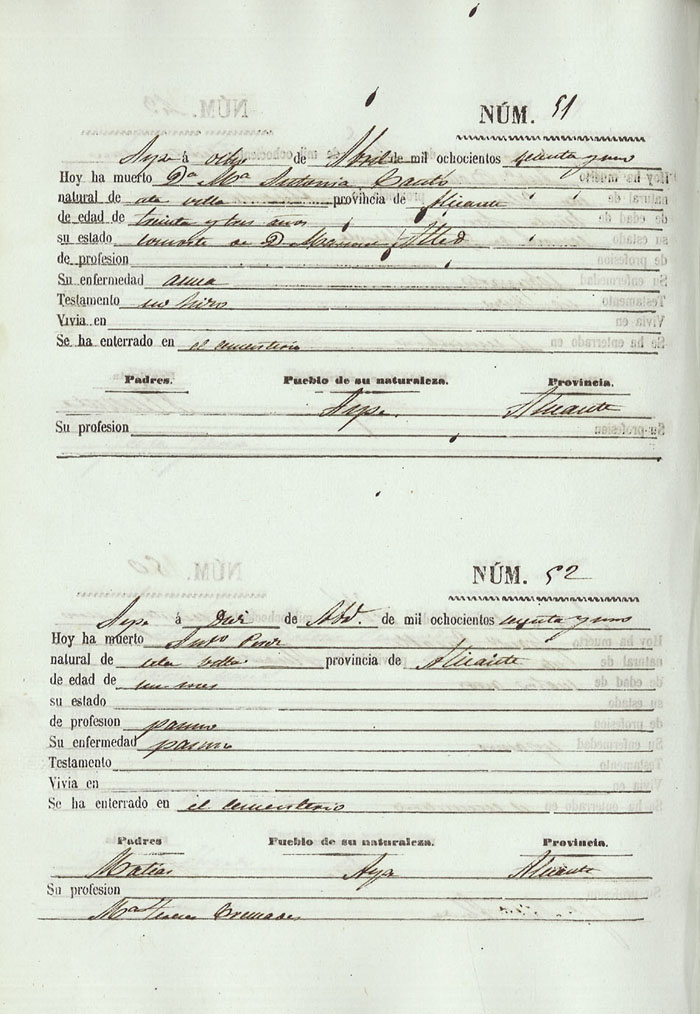 NÚM. 51
Aspe á ocho de Abril de mil ochocientos sesenta y uno
Hoy ha muerto Dª Mª Antonia
natural de esta villa provincia de Alicante
de edad de treinta y tres años
su estado consorte de D.
de profesion
Su enfermedad asma
Testamento no hizo
Vivia en
Se ha enterrado en el cementerio
Padres. Pueblo de su naturaleza. Provincia.
Aspe. Alicante
Su profesion
NÚM. 52
Aspe á Diez de Abl. de mil ochocientos sesenta y uno
Hoy ha muerto Antº
natural de esta villa provincia de Alicante
de edad de un mes
su estado
de profesion pasmo
Su enfermedad pasmo
Testamento
Vivia en
Se ha enterrado en el cementerio
Padres Pueblo de su naturaleza. Provincia.
Matias Aspe Alicante
Su profesion
Mª Teresa Cremades